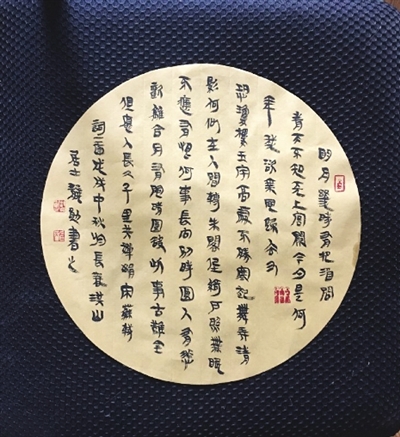 明月幾時有把酒問
青天不知天上宮闕今夕是何
年我欲乘風歸去又
恐瓊樓玉宇高處不勝寒起舞弄清
影何似在人間轉朱閣低綺戶照無眠
不應有恨何事長向別時圓人有悲
歡離合月有陰晴圓缺此事古難全
但願人長久千里共嬋娟宋蘇軾
詞一首戊戌中秋於長襄洪山
居士書之